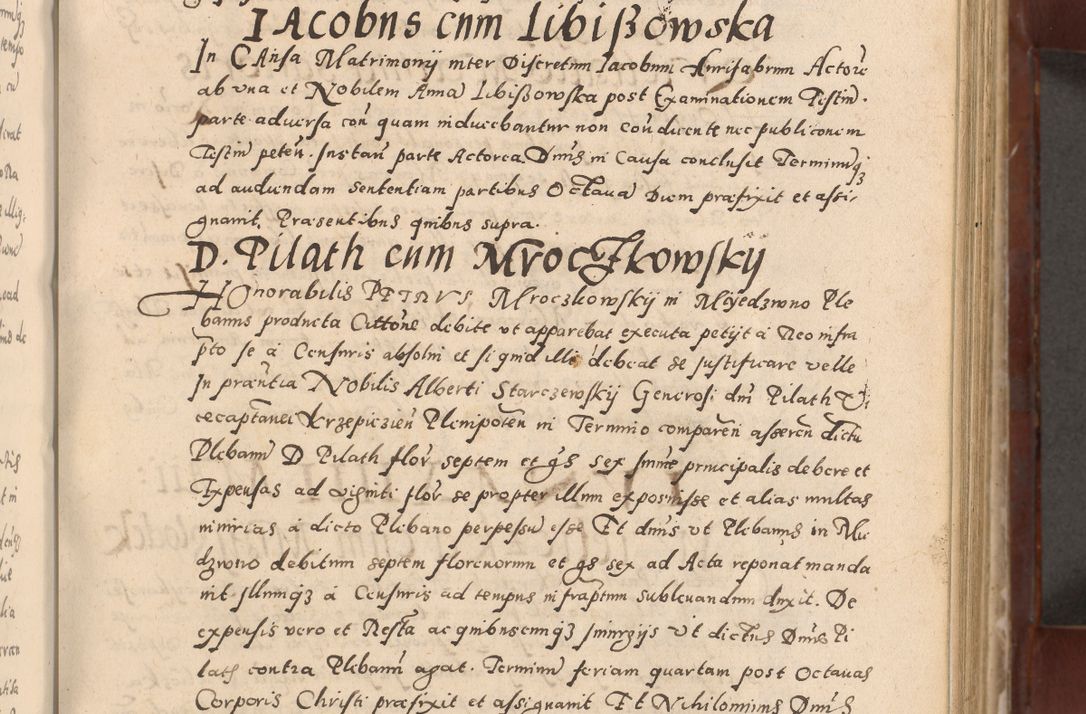 IAcobus cum Libißowska
In CAusa Matrimonij inter Discretum Iacobum Aurifabrum Actore
ab vna et Nobilem Anna Libißowska post Examinationem Testiu.
parte adversa con quam inducebantur non condicente nec publiconem
Testiu peten. Instan parte Actorea Dnus in Causa conclusit Terminuqz
ad audiendam sententiam partibus Octaua Diem praefixit et assi-
gnauit. Praesentibus quibus supra.
D. Pilath cum Mroczkowskij
HOnorabilis PETRVS Mroczkowskij in Miedzwno Ple
banus producta Cittone debite vt apparebat executa petijt a Reo infra
pto se a Censuris absolui et si quid illi debeat se justificare velle
In praentia Nobilis Alberti Starczewskij Generosi dni Pilath Vi
cecaptanei Krzepiczien Plenipoten in Termino comparen asseren dictu
Plebanu D Pilath flor septem et gs sex summe principalis debere et
Expensas ad viginti flor se propter illum exposuisse et alias multas
iniurias a dicto Plebano perpessu esse Et dnus vt Plebanus in Mie
dzwno debitum septem florenorum et gs sex ad Acta reponat manda
uit Illumqz a Censuris ad tempus infraptum subleuandum duxit. De
expensis vero et Resta ac quibuscunqz Iniurijs vt dictus Dnus Pi
lath contra Plebanu agat. Terminu feriam quartam post Octauas
Corporis Christi praefixit et assignauit Et Nihilominus Dnus